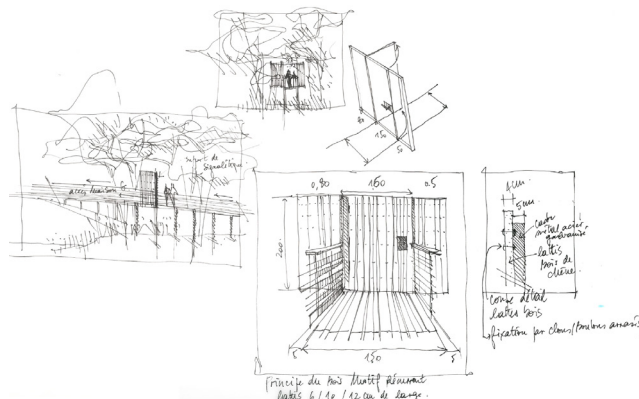 support de
signalétique
80
150
50
0,80
150
0.5
200
4cm
5cm
cadre
métal acier
galvanisé
lattes
bois de
chêne.
coupe détail
lattes bois
fixation par clous/boulons
150
Principe du bois Motif récurrent
lattes 6/10/12 cm de large.